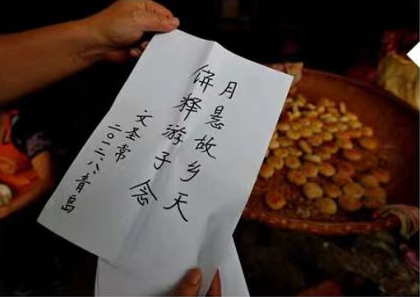 月悬故乡天
饼释游子念
文圣常
二〇一六.八.青岛